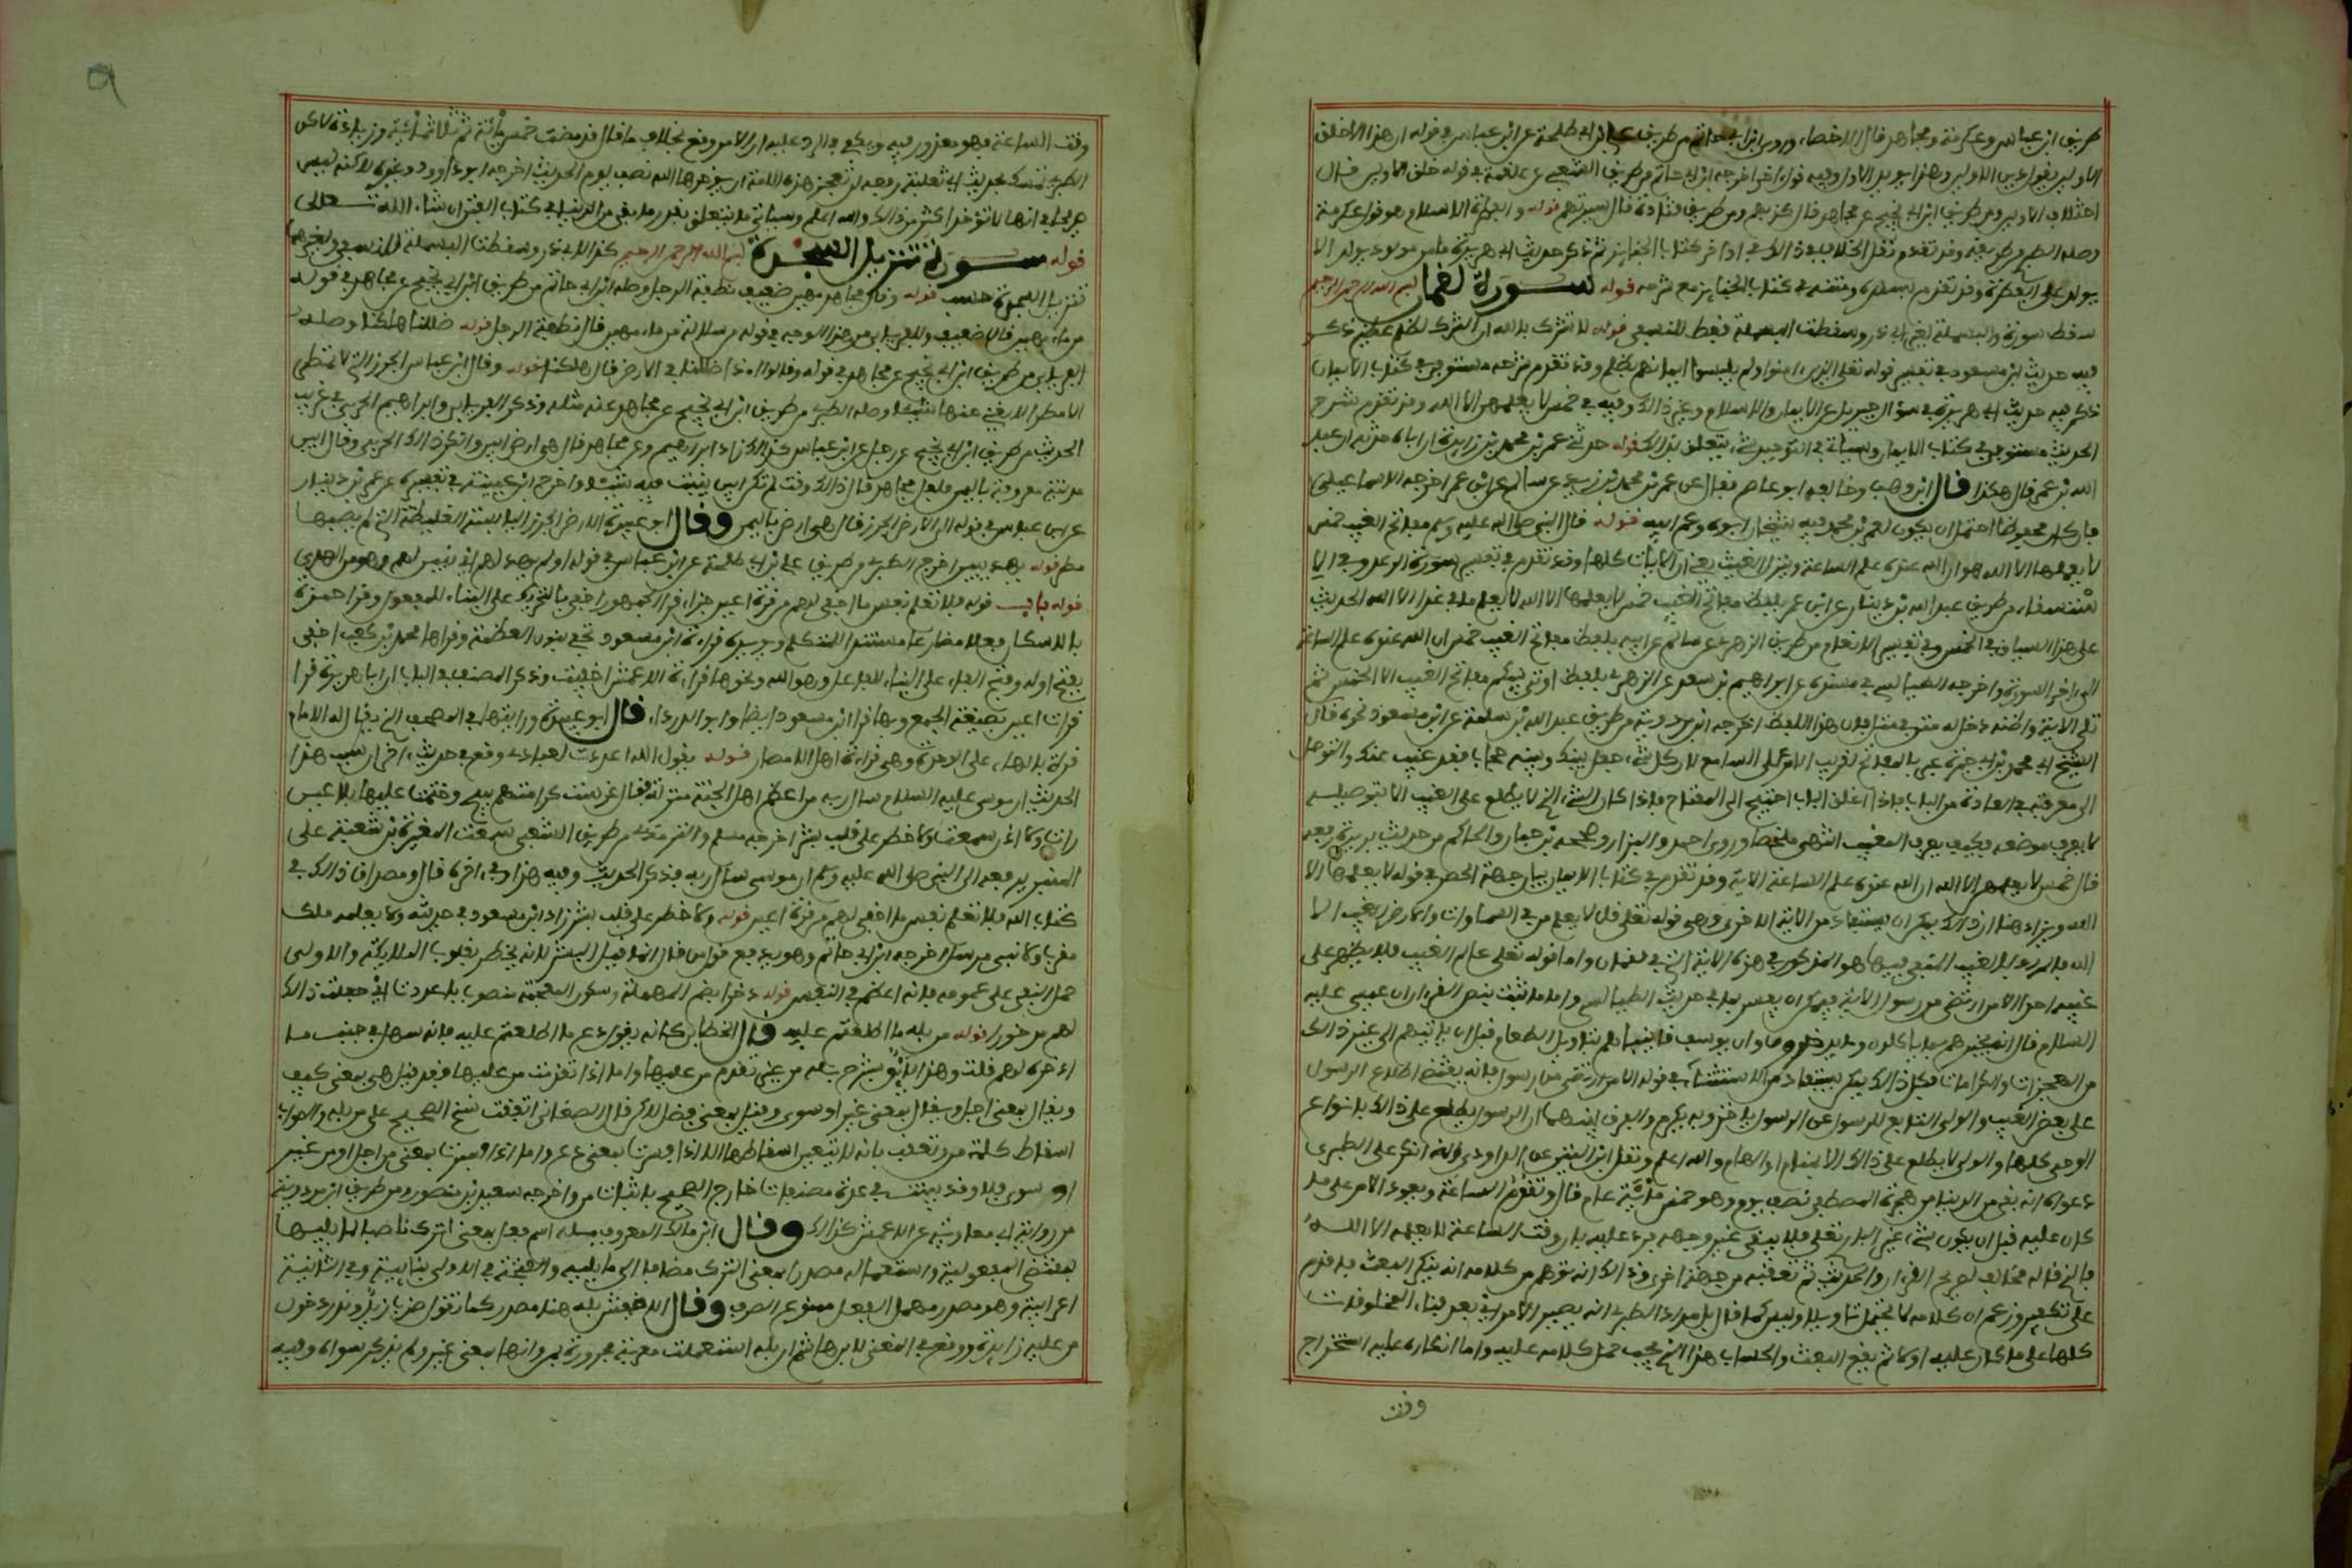 طريق ابن عباس وعكرمة ومجاهد قال الاخصاء وروى ابن ابي حاتم من طريق علي بن ابي طلحة عن ابن عباس في قوله ان هذا الا خلق
الاولين يقول دين الاولين وهذا يؤيد الاول وفيه قول اخر اخرجه ابن ابي حاتم من طريق الشعبي عن علقمة في قوله خلق الاولين قال
اختلاق الاولين ومن طريق ابن ابي نجيح عن مجاهد قال كذبهم ومن طريق قتادة قال سيرتهم قوله والفطرة الاسلام هو قول عكرمة
وصله الطبري من طريقه وقد تقدم نقل الخلاف في ذلك في اواخر كتاب الجنائز ثم ذكر حديث ابي هريرة ما من مولود يولد الا
يولد على الفطرة وقد تقدم بسنده ومتنه في كتاب الجنائز مع شرحه قوله سورة لقمان بسم الله الرحمن الرحيم
سقط سورة والبسملة لغير ابي ذر وسقطت البسملة فقط للنسفي قوله لا تشرك بالله ان الشرك لظلم عظيم ذكر
فيه حديث ابن مسعود في تفسير قوله تعلى الذين امنوا ولم يلبسوا ايمانهم بظلم وقد تقدم شرحه مستوفى في كتاب الايمان
ذكر فيه حديث ابي هريرة في سؤال جبريل عن الايمان والاسلام وغير ذلك وفيه في خمس لا يعلمهن الا الله وقد تقدم شرح
الحديث مستوفى في كتاب الايمان وسياتي في التوحيد شيء يتعلق بذلك قوله حدثني عمر بن محمد بن زيد ان اباه حدثه ان عبد
الله بن عمر قال هكذا قال ابن وهب وخالفه ابو عاصم فقال عن عمر بن محمد بن زيد عن سالم عن ابن عمر اخرجه الاسماعيلي
فان كان محفوظا احتمل ان يكون لعمر بن محمد فيه شيخان ابوه وعم ابيه قوله قال النبي صلى الله عليه وسلم مفاتح الغيب خمس
لا يعلمها الا الله هو ان الله عنده علم الساعة وينزل الغيث يعني الايات كلها وقد تقدم في تفسير سورة الرعد وفي الا
ستسقاء من طريق عبد الله بن دينار عن ابن عمر بلفظ مفاتح الغيب خمس لا يعلمها الا الله لا يعلم ما في غد الا الله الحديث
على هذا السياق في الخمس وفي تفسير الانعام من طريق الزهري عن سالم عن ابيه بلفظ مفاتح الغيب خمس ان الله عنده علم الساعة
الى اخر السورة واخرجه الطيالسي في مسنده عن ابراهيم بن سعد عن الزهري بلفظ اوتي نبيكم مفاتح الغيب الا الخمس ثم
تلى الاية واظنه دخل له متن في متن فان هذا اللفظ اخرجه ابن مردويه من طريق عبد الله بن سلمة عن ابن مسعود نحوه قال
الشيخ ابي محمد بن ابي جمرة عبر بالمفاتح لتقريب الامر على السامع لان كل شيء جعل بينك وبينه حجاب فقد غيب عنك والتوصل
الى معرفته في العادة من الباب فاذا اغلق الباب احتيج الى المفتاح فاذا كان الشيء الذي لا يطلع على الغيب الا بتوصيله
لا يعرف موضعه فكيف يعرف المغيب انتهى ملخصا وروى احمد والبزار وصححه ابن حبان والحاكم من حديث بريدة رفعه
قال خمس لا يعلمهن الا الله ان الله عنده علم الساعة الاية وقد تقدم في كتاب الايمان بيان جهة الحصر في قوله لا يعلمها الا
الله ويزاد هنا ان ذلك يمكن ان يستفاد من الاية الاخرى وهي قوله تعلى قل لا يعلم من في السماوات والارض الغيب الا
الله فالمراد بالغيب المنفي فيها هو المذكور في هذه الاية التي في لقمان واما قوله تعلى عالم الغيب فلا يظهر على
غيبه احدا الا من ارتضى من رسول الاية فيمكن ان يفسر بما في حديث الطيالسي واما ما ثبت بنص القرءان ان عيسى عليه
السلام قال انه يخبرهم بما ياكلون وما يدخرون وان يوسف قال انه ينبئهم بتاويل الطعام قبل ان ياتيهم الى غير ذلك
من المعجزات والكرامات فكل ذلك يمكن ان يستفاد من الاستثناء في قوله الا من ارتضى من رسول فانه يقتضي اطلاع الرسول
على بعض الغيب والولي التابع للرسول عن الرسول ياخذ وبه يكرم والفرق بينهما ان الرسول يطلع على ذلك بانواع
الوحي كلها والولي لا يطلع على ذلك الا بمنام او الهام والله اعلم ونقل ابن التين عن الداودي انه انكر على الطبري
دعواه انه بقي من الدنيا من هجرة المصطفى نصف يوم وهو خمس مائة عام قال وتقوم الساعة ويعود الامر على ما
كان عليه قبل ان يكون شيء غير البارئ تعلى فلا يبقى غير وجهه فرد عليه بان وقت الساعة لا يعلمه الا الله
فالذي قاله مخالف لصريح القرءان والحديث ثم تعقبه من جهة اخرى وذلك انه توهم من كلامه انه ينكر البعث فاقدم
على تكفيره وزعم ان كلامه لا يحتمل تاويلا وليس كما قال بل مراد الطبري انه يصير الامر اي بعد فناء المخلوقات
كلها على ما كان عليه اولا ثم يقع البعث والحساب هذا الذي يجب حمل كلامه عليه واما انكاره عليه استخراج
وقت
٩
وقت الساعة فهو معذور فيه ويكفي في الرد عليه ان الامر وقع بخلاف ما قال فقد مضت خمس مائة ثم ثلاثمائة وزيادة لاكن
الطبري تمسك بحديث ابي ثعلبة رفعه لن تعجز هذه الامة ان يؤخرها الله نصف يوم الحديث اخرجه ابو داوود وغيره لاكنه ليس
صريحا في انها لا تؤخر اكثر من ذلك والله اعلم وسياتي ما يتعلق بقدر ما بقي من الدنيا في كتاب الفتن ان شاء الله تعلى
قوله سورة تنزيل السجدة بسم الله الرحمن الرحيم كذا لابي ذر وسقطت البسملة للنسفي ولغيرهما
تنزيل السجدة حسب قوله وقال مجاهد مهين ضعيف نطفة الرجل وصله ابن ابي حاتم من طريق ابن ابي نجيح عن مجاهد في قوله
من ماء مهين قال ضعيف وللفريابي من هذا الوجه في قوله من سلالة من ماء مهين قال نطفة الرجل قوله ضللنا هلكنا وصله
الفريابي من طريق ابن ابي نجيح عن مجاهد في قوله وقالوا اءذا ضللنا في الارض قال هلكنا قوله وقال ابن عباس الجرز التي لا تمطر
الا مطرا لا يغني عنها شيئا وصله الطبري من طريق ابن ابي نجيح عن مجاهد عنه مثله وذكر الفريابي وابراهيم الحربي في غريب
الحديث من طريق ابن ابي نجيح عن رجل عن ابن عباس كذلك زاد ابراهيم وعن مجاهد قال هي ارض ابين وانكر ذلك الحربي وقال ابين
مدينة معروفة باليمن فلعل مجاهد قال ذلك وقت لم تكن ابين تنبت فيه شيئا واخرج ابن عيينة في تفسيره عن عمرو بن دينار
عن ابن عباس في قوله الى الارض الجرز قال هي ارض باليمن وقال ابو عبيدة الارض الجرز اليابسة الغليظة التي لم يصبها
مطر قوله يهد يبين اخرج الطبري من طريق علي بن ابي طلحة عن ابن عباس في قوله اولم يهد لهم اي يبين لهم وهو من الهدى
قوله باب قوله فلا تعلم نفس ما اخفي لهم من قرة اعين جزاء قرا الجمهور اخفي بالتحريك على البناء للمفعول وقرا حمزة
بالاسكان فعلا مضارعا مستندا للمتكلم ويؤيده قراءة ابن مسعود نخفي بنون العظمة وقراها محمد بن كعب اخفى
بفتح اوله وفتح الفاء على البناء للفاعل وهو الله ونحوها قراءة الاعمش اخفيت وذكر المصنف في الباب ان ابا هريرة قرا
قرات اعين بصيغة الجمع وبها قرا ابن مسعود ايضا وابو الدرداء قال ابو عبيدة ورايتها في المصحف الذي يقال له الامام
قرة بالهاء على الوحدة وهي قراءة اهل الامصار قوله يقول الله اعددت لعبادي وقع في حديث اخر ان سبب هذا
الحديث ان موسى عليه السلام سال ربه من اعظم اهل الجنة منزلة فقال غرست كرامتهم بيدي وختمت عليها فلا عين
رات ولا اذن سمعت ولا خطر على قلب بشر اخرجه مسلم والترمذي من طريق الشعبي سمعت المغيرة بن شعبة على
المنبر يرفعه الى النبي صلى الله عليه وسلم ان موسى سال ربه فذكر الحديث وفيه هذا وفي اخره قال ومصداق ذلك في
كتاب الله فلا تعلم نفس ما اخفي لهم من قرة اعين قوله ولا خطر على قلب بشر زاد ابن مسعود في حديثه ولا يعلمه ملك
مقرب ولا نبي مرسل اخرجه ابن ابي حاتم وهو يدفع قول من قال انما قيل البشر لانه يخطر بقلوب الملايكة والاولى
حمل النفي على عمومه فانه اعظم في النفس قوله دخرا بضم المهملة وسكون المعجمة منصوب باعددت اي جعلت ذلك
لهم مذخورا قوله من بله ما اطلعتم عليه قال الخطابي كانه يقول دع ما اطلعتم عليه فانه سهل في جنب ما
ادخر لهم قلت وهذا لائق بشرح بله من غير تقدم من عليها واما اذا تقدمت من عليها فقد قيل هي بمعنى كيف
ويقال بمعنى اجل ويقال بمعنى غير او سوى وقيل بمعنى فضل لاكن قال الصغاني اتفقت نسخ الصحيح على من بله والصواب
اسقاط كلمة من وتعقب بانه لا يتعين اسقاطها الا اذا فسرت بمعنى دع واما اذا فسرت بمعنى من اجل او من غير
او سوى فلا وقد ثبتت في عدة مصنفات خارج الصحيح باثبات من واخرجه سعيد بن منصور ومن طريق ابن مردويه
من رواية ابي معاوية عن الاعمش كذلك وقال ابن مالك المعروف بله اسم فعل بمعنى اترك ناصبا لما يليها
بمقتضى المفعولية واستعماله مصدرا بمعنى الترك مضافا الى ما يليه والفتحة في الاولى بنايية وفي الثانية
اعرابية وهو مصدر مهمل الفعل ممنوع الصرف وقال الاخفش بله هنا مصدر كما تقول ضرب زيد وندر دخول
من عليه زايدة ووقع في المغني لابن هشام ان بله استعملت معربة مجرورة بمن وانها بمعنى غير ولم يذكر سواه وفيه